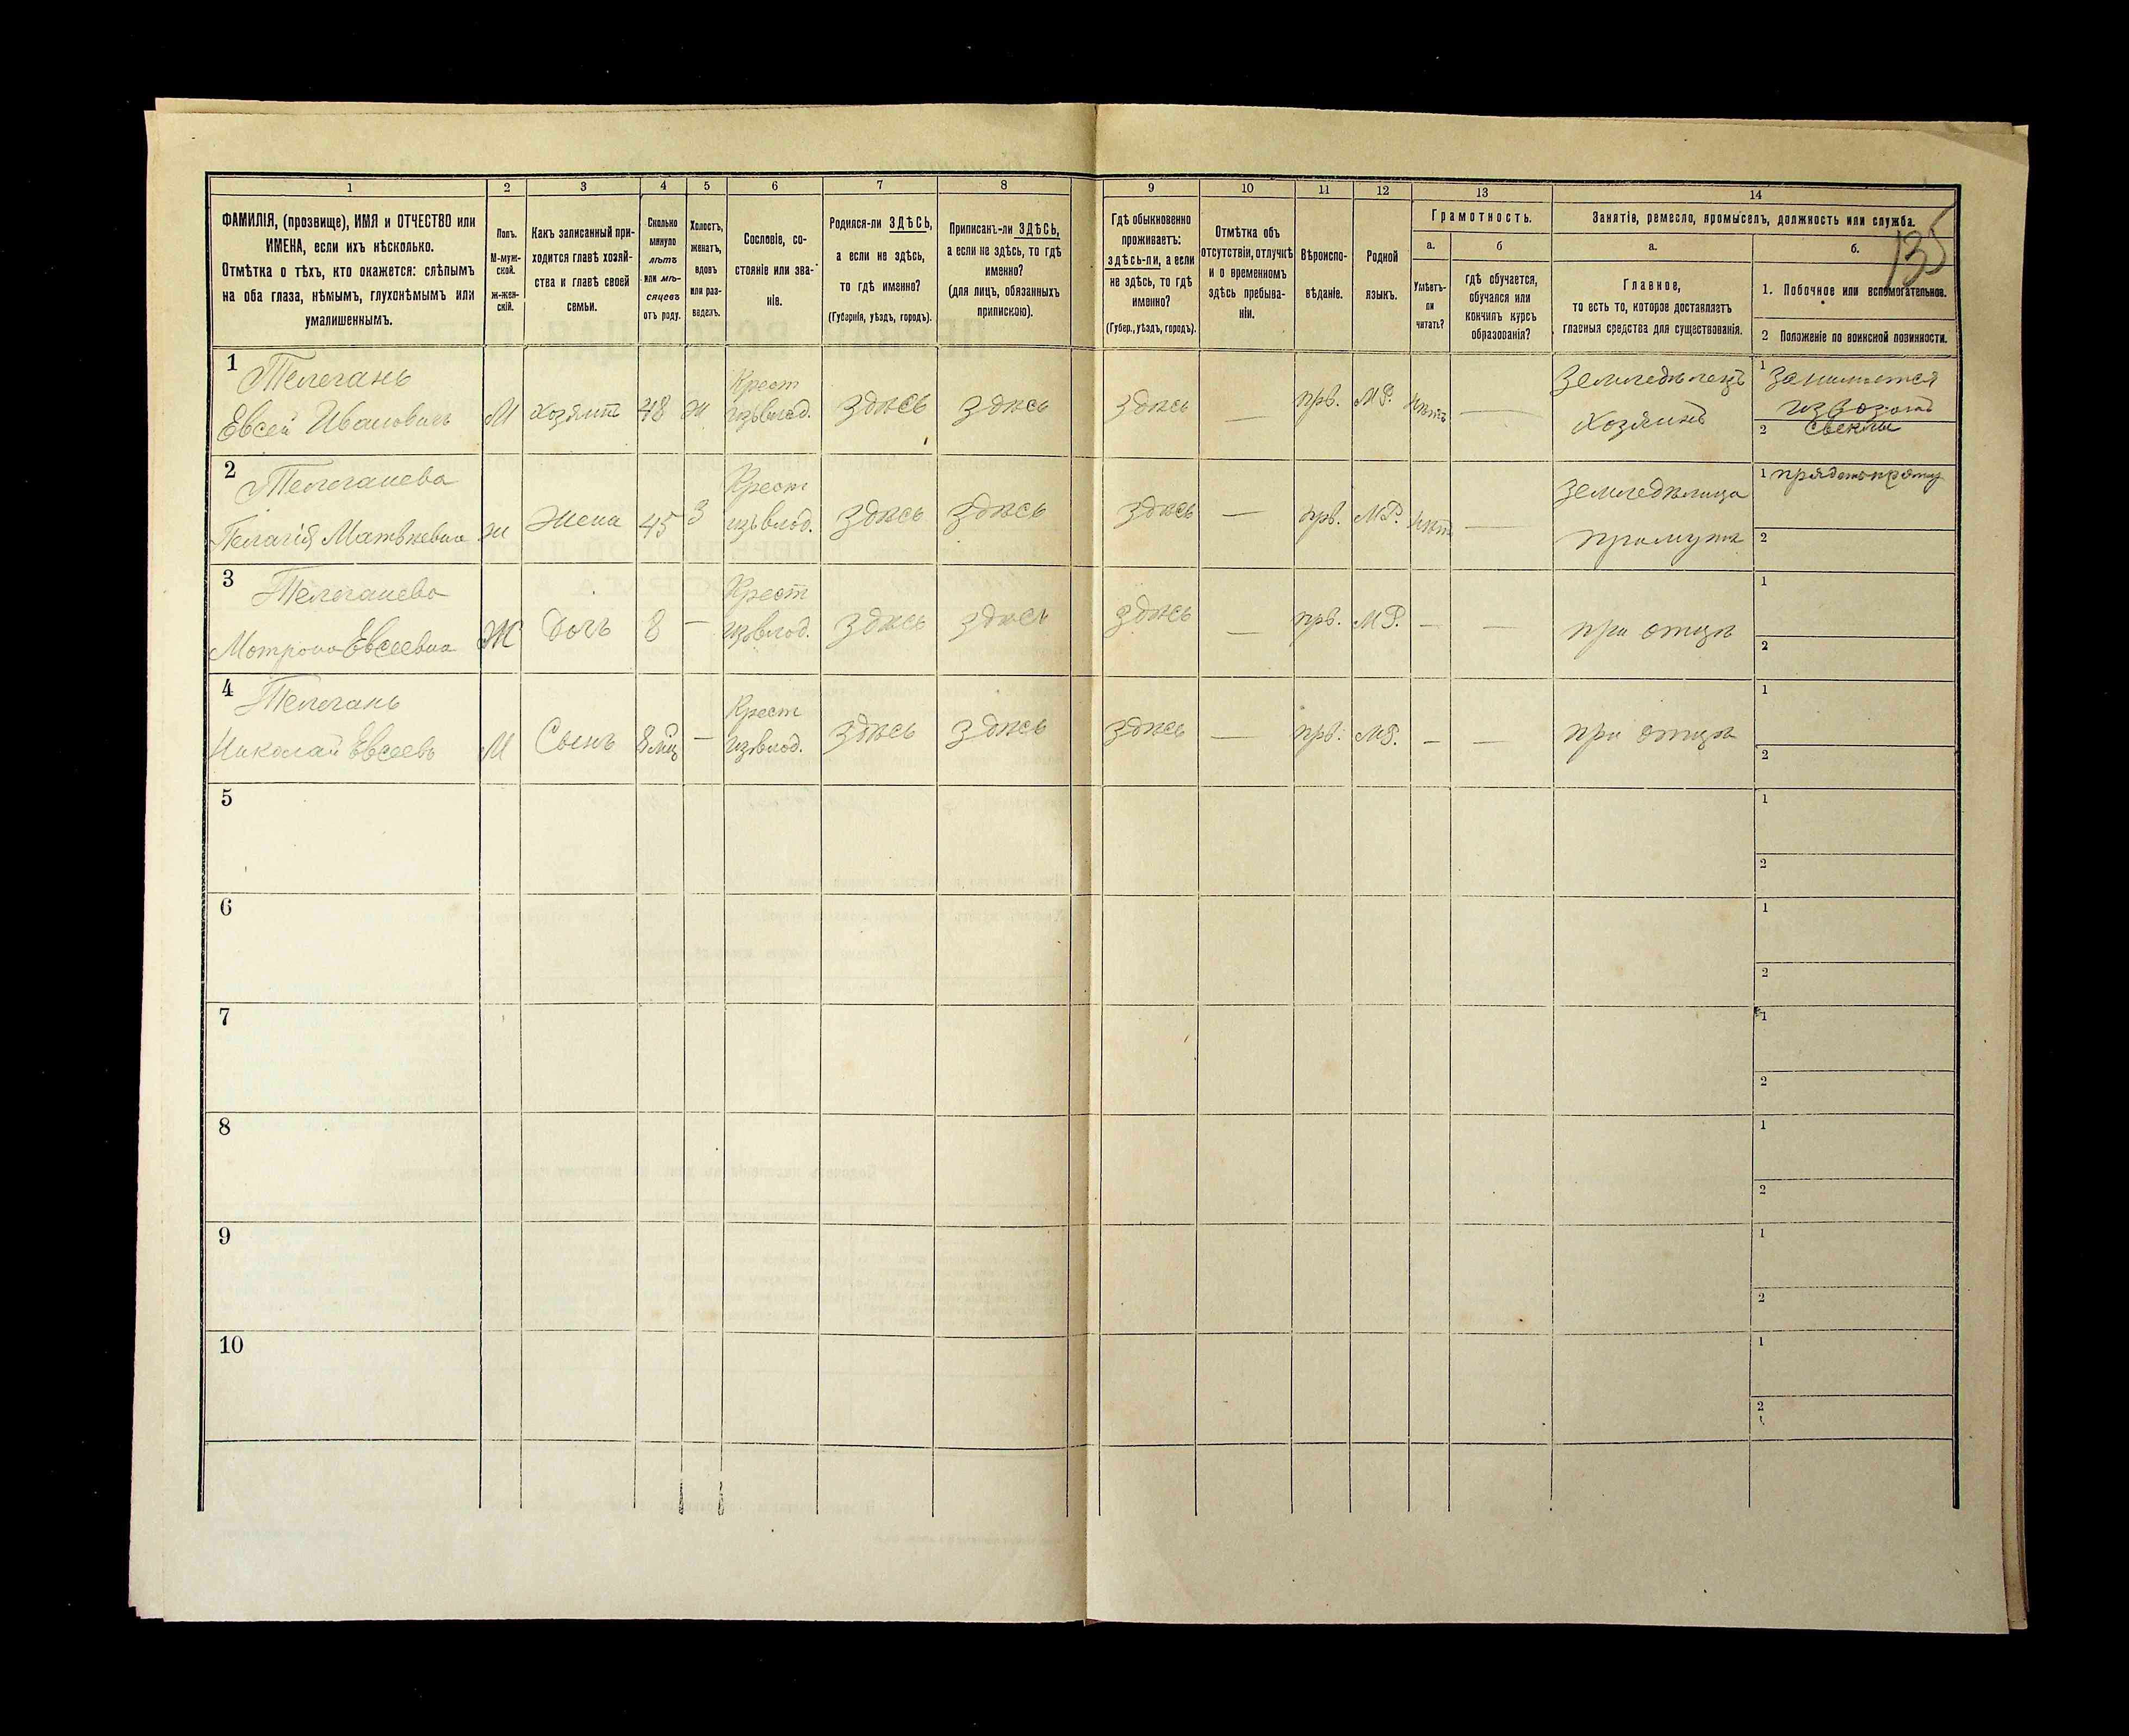 135
1 2 3 4 5 6 7 8 9 10 11 12 13 14
ФАМИЛІЯ, (прозвище), ИМЯ и ОТЧЕСТВО или
ИМЕНА, если ихъ нѣсколько.
Отмѣтка о тѣхъ, кто окажется: слѣпымъ
на оба глаза, нѣмымъ, глухонѣмымъ или
умалишеннымъ.
Полъ.
М-муж-
ской.
Ж-жен-
скій.
Какъ записанный при-
ходится главѣ хозяй-
ства и главѣ своей
семьи.
Сколько
минуло
лѣтъ
или мѣ-
сяцевъ
отъ роду.
Холостъ,
женатъ,
вдовъ
или раз-
веденъ.
Сословіе, со-
стояніе или зва-
ніе.
Родился-ли ЗДѢСЬ,
а если не здѣсь,
то гдѣ именно?
(Губернія, уѣздъ, городъ).
Приписанъ-ли ЗДѢСЬ,
а если не здѣсь, то гдѣ
именно?
(для лицъ, обязанныхъ
припискою).
Гдѣ обыкновенно
проживаетъ:
здѣсь-ли, а если
не здѣсь, то гдѣ
именно?
(Губер., уѣздъ, городъ).
Отмѣтка объ
отсутствіи, отлучкѣ
и о временномъ
здѣсь пребыва-
ніи.
Вѣроиспо-
вѣданіе.
Родной
языкъ.
Грамотность.
а.
Умѣетъ-
ли
читать?
б
гдѣ обучается,
обучался или
кончилъ курсъ
образованія?
Занятіе, ремесло, промыселъ, должность или служба.
а.
Главное,
то есть то, которое доставляетъ
главныя средства для существованія.
б.
1. Побочное или вспомогательное.
2 Положеніе по воинской повинности.
1 Телегань Крест Земледѣлецъ 1 Занимается
Евсей Ивановичъ М Хозяинъ 48 ж здѣсь здѣсь здѣсь — прв. МР. нѣтъ — Хозяинъ извозомъ
2 свеклы
2 Телеганева Крест Земледѣлица 1
Пелагія Матвѣевна ж Жена 45 З здѣсь здѣсь здѣсь — прв. МР. нѣтъ — 2
3 Телеганева Крест 1
Мотрона Евсеевна Ж Дочь 8 — здѣсь здѣсь здѣсь — прв. МР. — — при отцѣ 2
4 Телегань Крест 1
Николай Евсеевъ М Сынъ 8 мц — здѣсь здѣсь здѣсь — прв. МР. — — при отцѣ 2
5 1
2
6 1
2
7 1
2
8 1
2
9 1
2
10 1
2